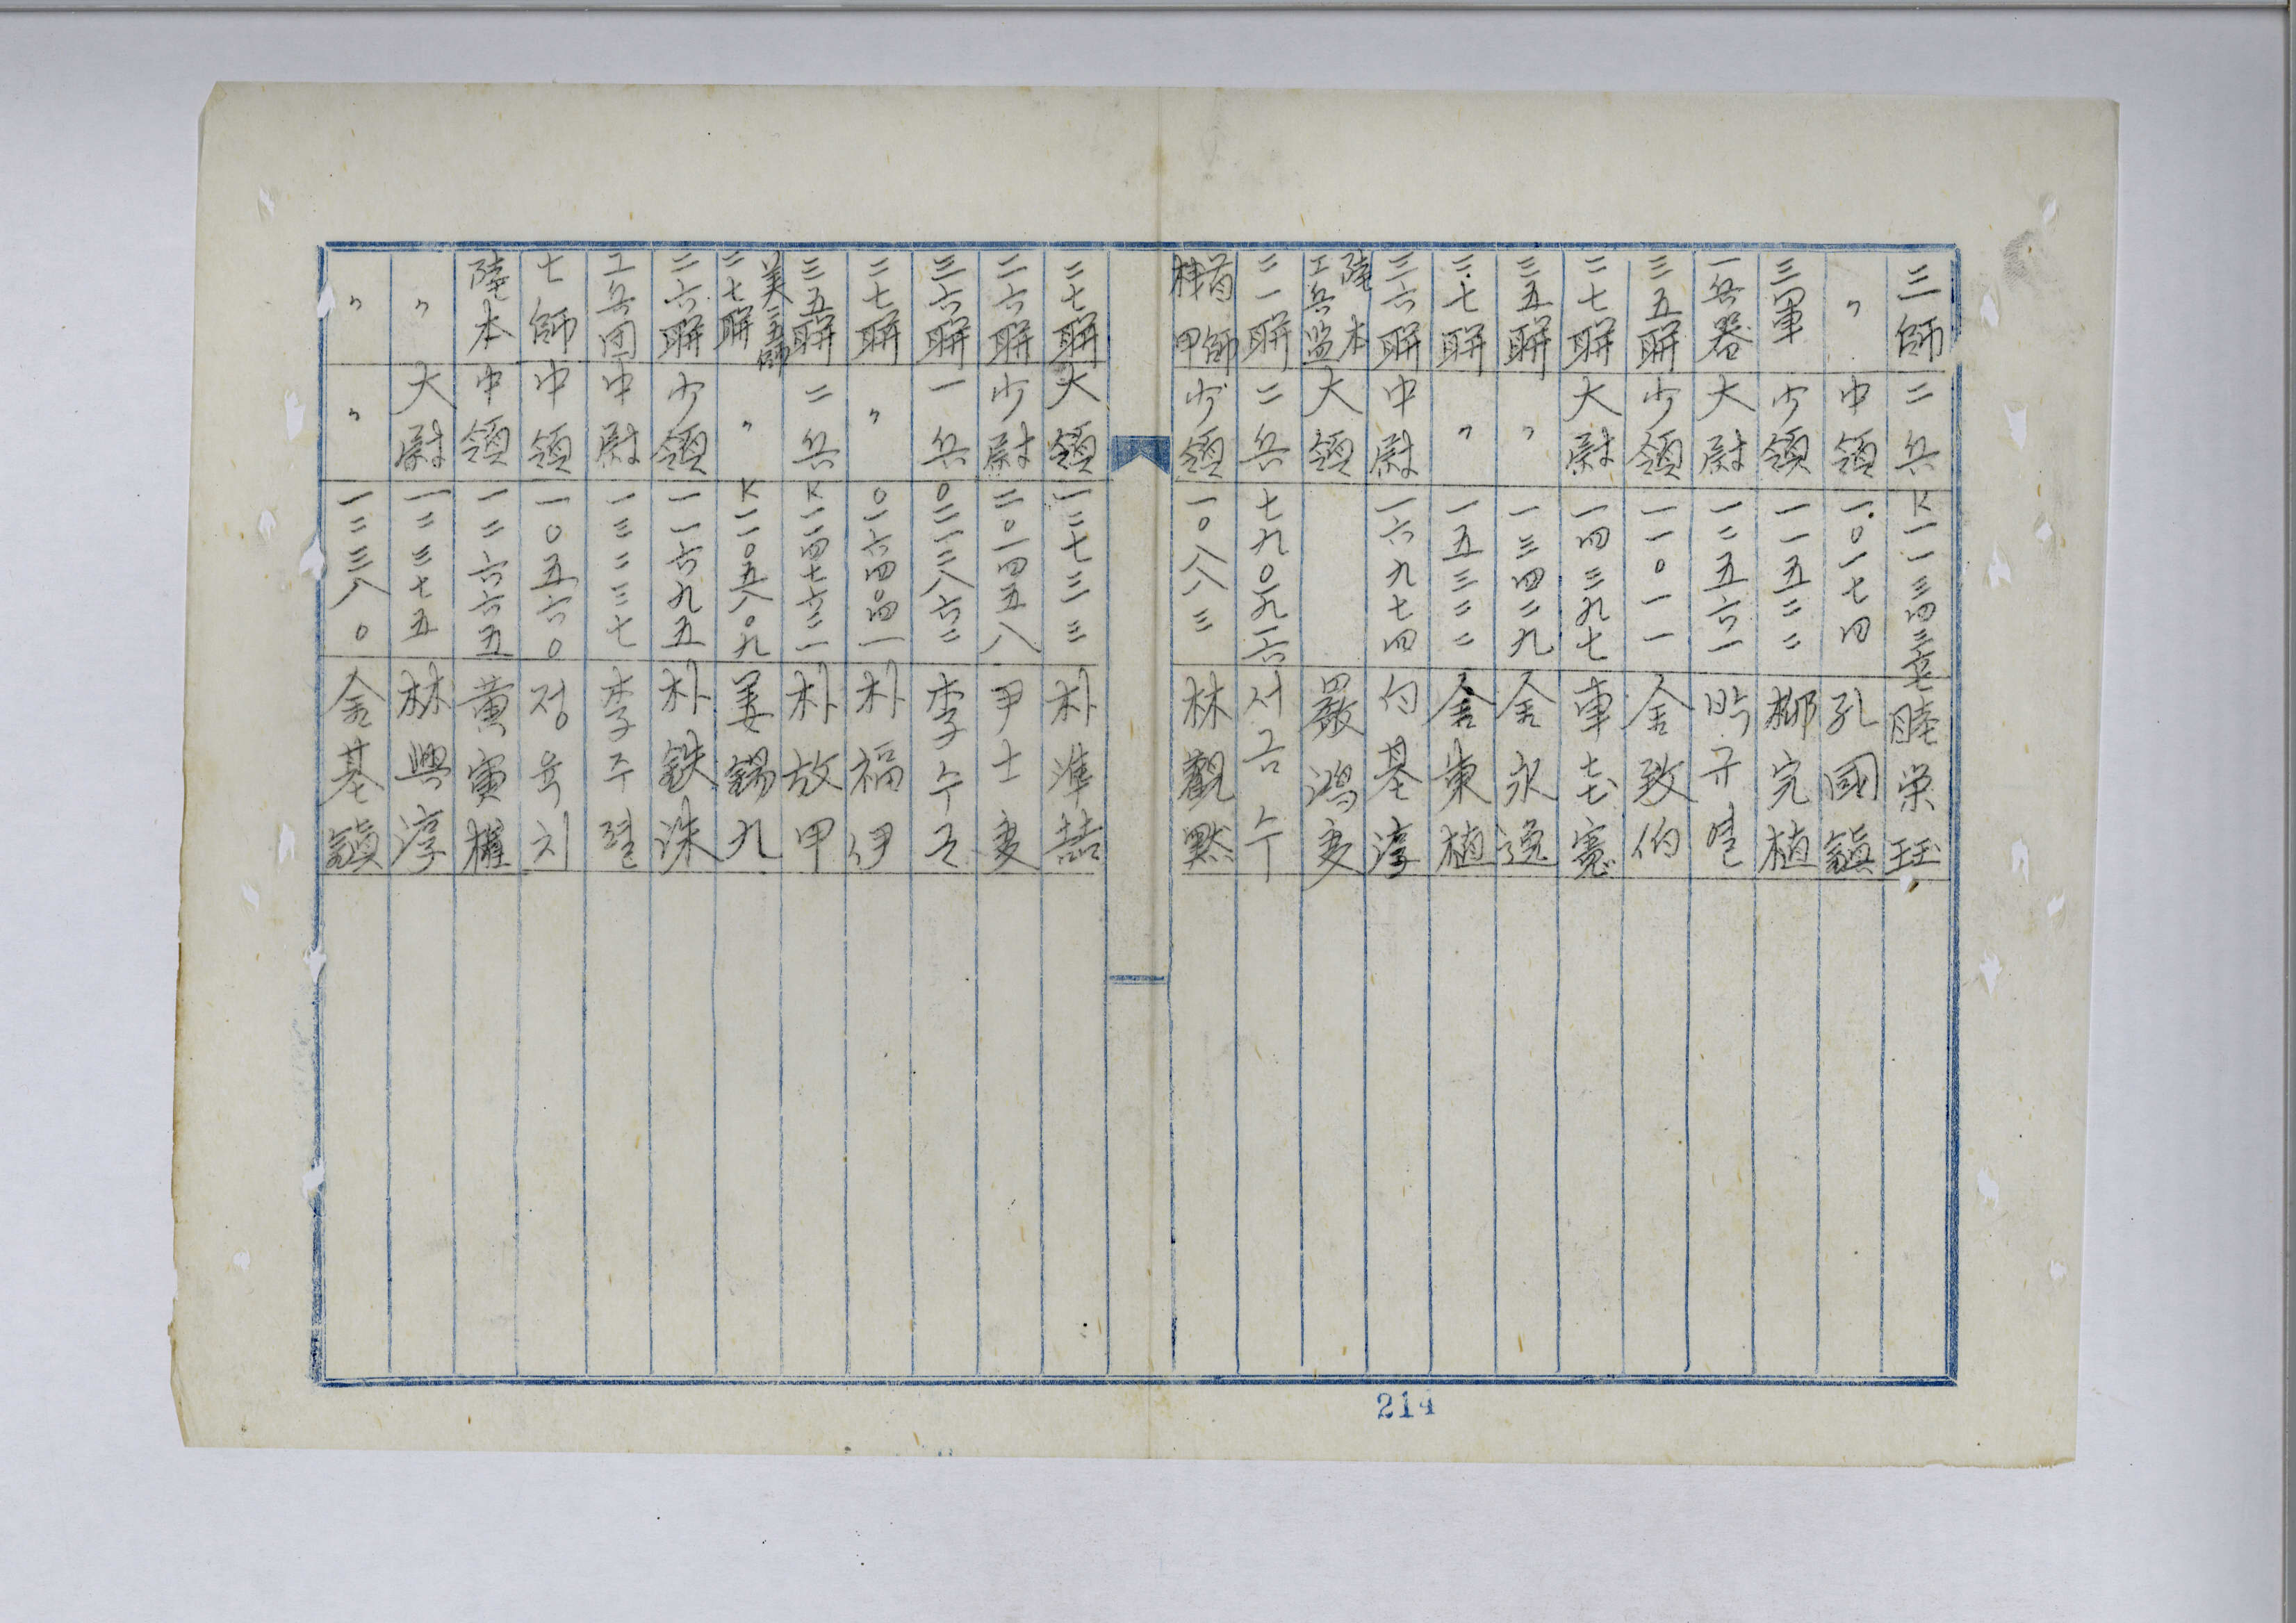 三師 二兵 K一一三四三七 睦栄珏
〃 中領 一〇一七四 孔國鎭
三軍 少領 一一五二二 柳完植
一兵器 大尉 一二五六一 규열
三五聯 少領 一一〇一一 金致伯
二七聯 大尉 一四三九七 車寬
三五聯 〃 一三四二九 金永逸
三七聯 〃 一五三二二 金東植
三六聯 中尉 一六九七四 基淳
陸本工兵監 大領 嚴鴻燮
二一聯 二兵 七九〇一九一六 서금수
首師 少領 一〇八八三 林觀黙
二七聯 大領 一二七三三 朴準喆
二六聯 少尉 二〇一四五八 尹士燮
三六聯 一兵 〇二一二八六二 李수근
二七聯 〃 〇一六四〇四一 朴福伊
三五聯 二兵 K一一四七六二一 朴放甲
美三師二七聯 〃 K一一〇五八〇九 姜錫九
二六聯 少領 一一六九五 朴鉄洙
工兵団 中尉 一三二三七 李주열
七師 中領 一〇五六〇 정육치
陸本 中領 一二六六五 黃寅權
〃 大尉 一二三七五 林興淳
〃 〃 一二三八〇 金基鎭
214